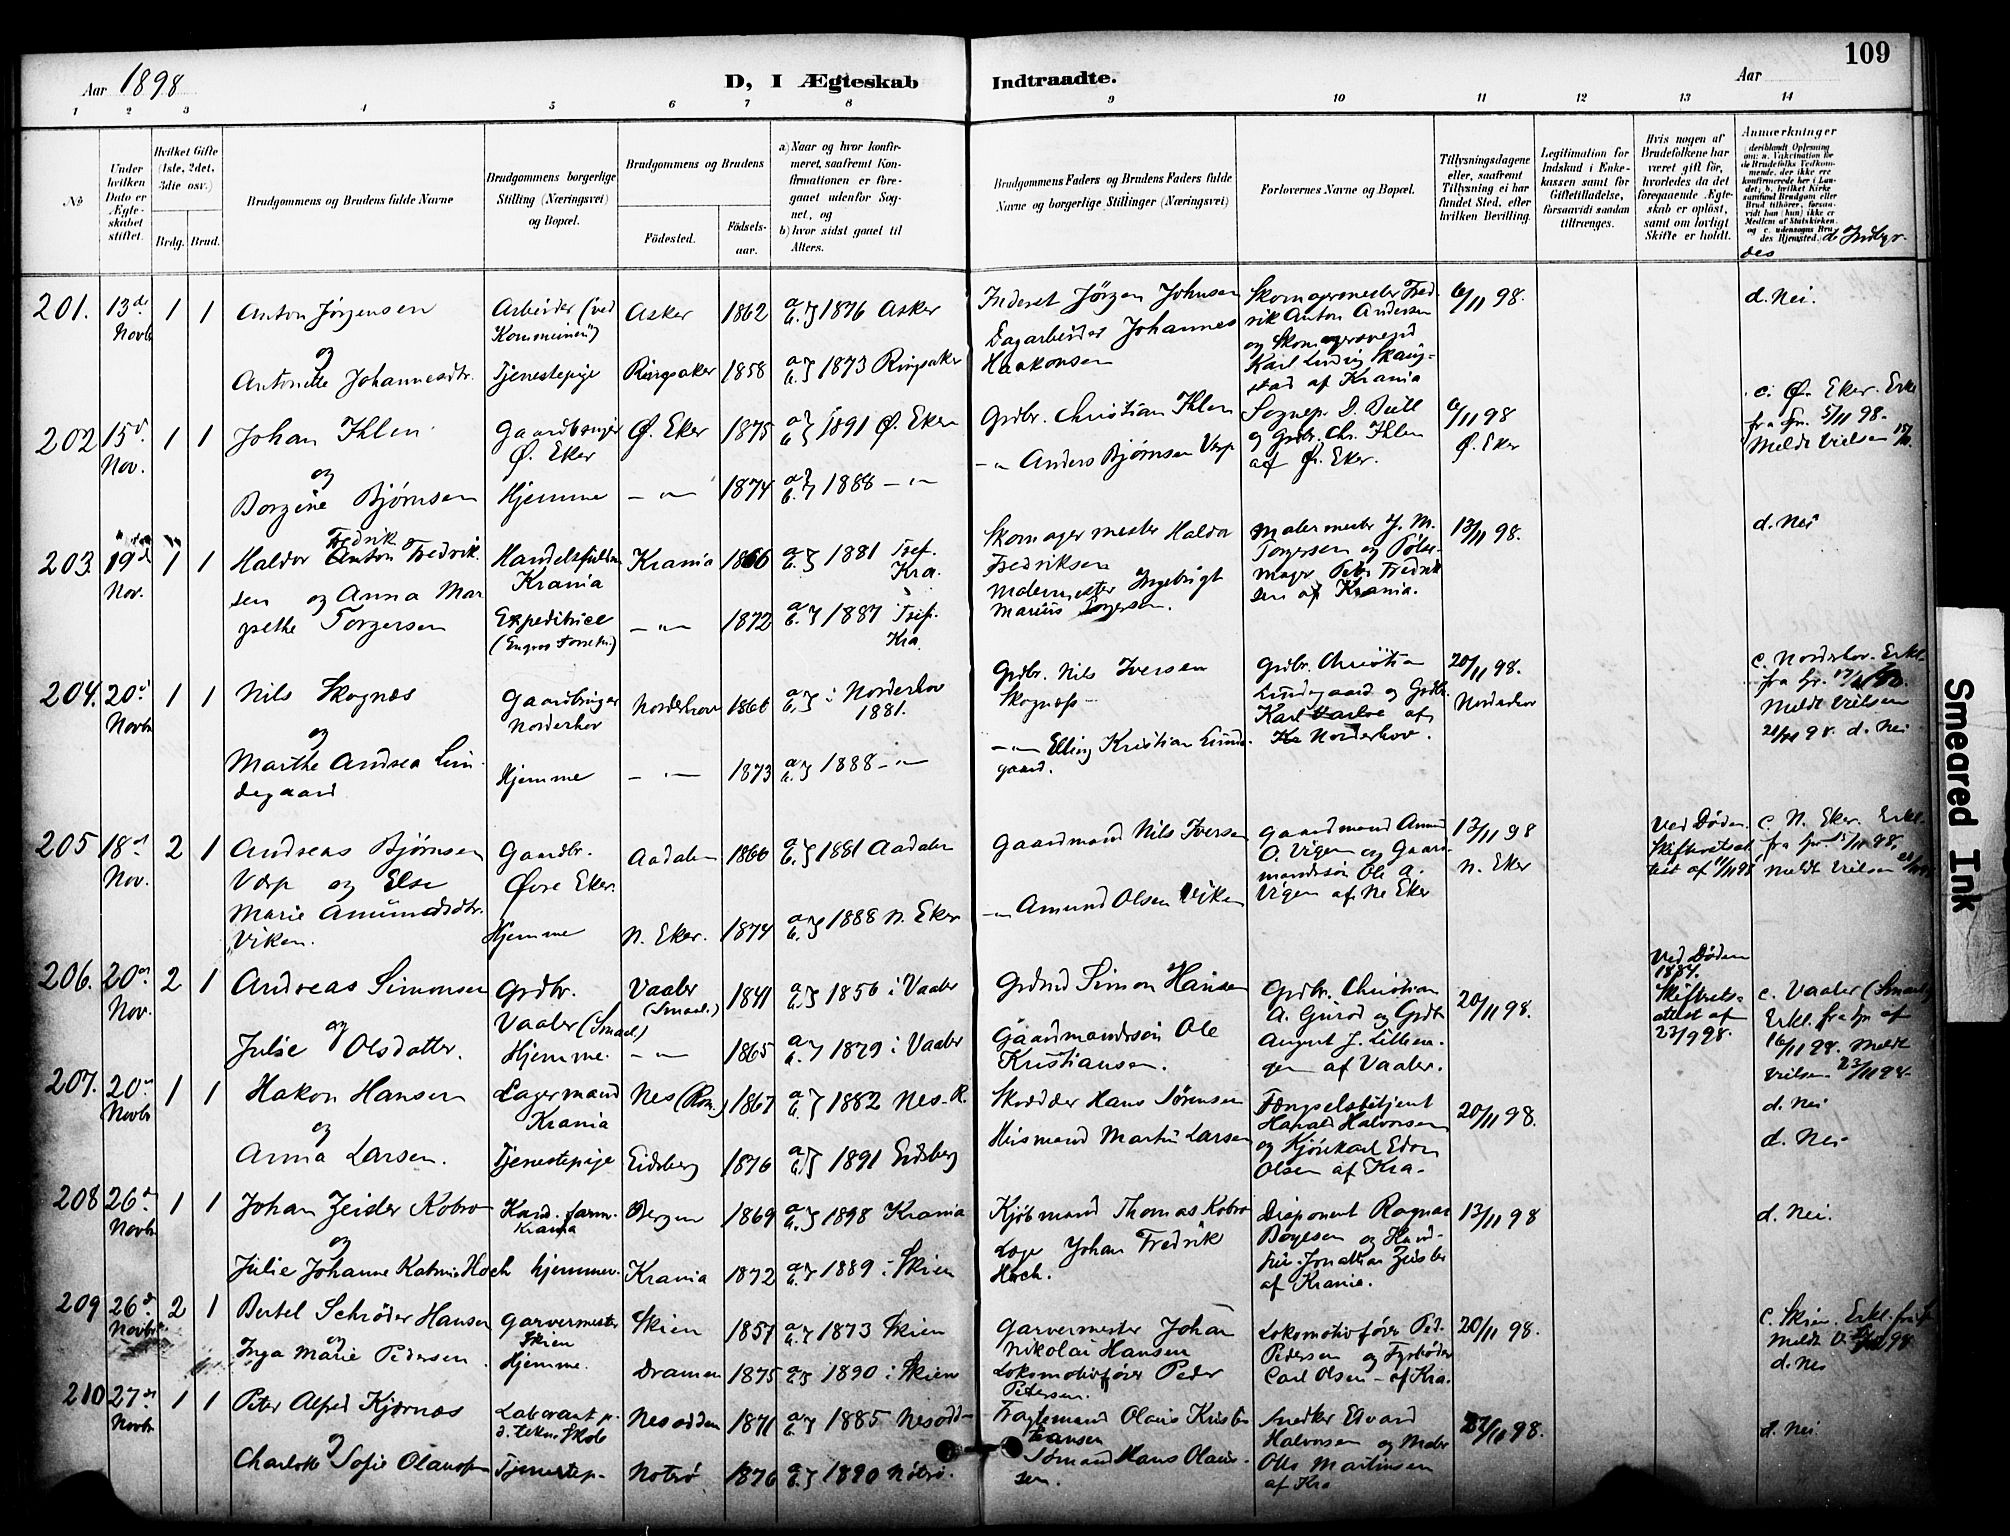 109
Aar 1898
D, I Ægteskab Indtraadte.
Aar
1 2 3 4 5 6 7 8 9 10 11 12 13 14
No
Under hvilken Dato er Ægteskabet stiftet.
Hvilket Gifte (1ste, 2det, 3die osv.)
Brdg. Brud.
Brudgommens og Brudens fulde Navne
Brudgommens borgerlige Stilling (Næringsvei) og Bopæl.
Brudgommens og Brudens
Fødested. Fødselsaar.
a) Naar og hvor konfirmeret, saafremt Konfirmationen er foregaaet udenfor Sognet, og
b) hvor sidst gaaet til Alters.
Brudgommens Faders og Brudens Faders fulde Navne og borgerlige Stillinger (Næringsvei)
Forlovernes Navne og Bopæl.
Tillysningsdagene eller, saafremt Tillysning ei har fundet Sted, efter hvilken Bevilling.
Legitimation for Indskud i Enkekassen samt for Giftetilladelse, forsaavidt saadan tiltrænges.
Hvis nogen af Brudefolkene har været gift før, hvorledes da det foregaaende Ægteskab er opløst, samt om lovligt Skifte er holdt.
Anmærkninger (deriblandt Oplysning om: a. Vakcination for de Brudefolks Vedkommende, der ikke ere konfirmerede her i Landet; b. hvilket Kirkesamfund Brudgom eller Brud tilhører, forsaavidt han (hun) ikke er Medlem af Statskirken, og c. udensogns Brudes Hjemsted.
201. 13de Novbr 1 1 Anton Jørgensen Arbeider (ved Kommunen) Asker 1862 a b } 1876 Asker Inderst Jørgen Johnsen Skomagermester Fredrik Anton Andersen 6/11 98. d. Nei.
og
Antonette Johannesdtr. Tjenestepige Ringsaker 1858 a b } 1873 Ringsaker Dagarbeider Johannes Haakonsen og Skomagersvend Karl Ludvig Skaugstad af Krania
202 15d. Nov. 1 1 Johan Ihlen Gaardbruger Ø. Eker Ø. Eker 1875 a b } 1891 Ø. Eker Grdbr. Christian Ihlen Sognepr. D. 6/11 98 Ø. Eker c. Ø. Eker. Erkl. fra Spr. 5/11 98. Meldt Vielsen
og
Borgine Bjørnsen Hjemme - " - 1874 a b } 1888 - " - - " Anders Bjørnsen Værp og Grdbr. Chr. Ihlen af Ø. Eker.
203. 19d Nov. 1 1 Haldor Fredrik Anton Fredriksen Krania Krania 1866 a b } 1881 Tref. Kra. Skomagermester Haldor Fredriksen Malermester J. M. Torgersen og Pølsemager Fredriksen af Krania. 13/11 98. d. Nei
og Anna Margrethe Torgersen Expeditrice - " - 1872 a b } 1887 Tref. Kra. Malermester Ingebrigt Marius Torgersen.
204. 20d Novbr 1 1 Nils Skognæs Gaardbruger Norderhov Norderhov 1866 a b } i Norderhov 1881. Grdbr. Nils Iversen Skognæs Grdbr. Christian Lindegaard og Grdbr. Karl af Norderhov. 20/11 98. Norderhov c. Norderhov. Erkl. fra Spr. Meldt Vielsen 21/11 98. d. Nei
og
Marthe Andrea Lindegaard Hjemme - " - 1873 a b } 1888 - " - - " - Elling Kristian Lindegaard.
205 18d Nov. 2 1 Andreas Bjørnsen Værp og Else Gaardbr. Øvre Eker. Aadalen 1866 a b } 1881 Aadalen Gaardmand Nils Iversen Gaardmand Amund O. Vigen og Gaardmandssøn Ole A. Vigen af N. Eker 13/11 98 N. Eker Ved Døden. c. N. Eker. Erkl. fra Spr. 15/11 98. Meldt Vielsen
Marie Amundsdtr. Viken. Hjemme N. Eker. 1874 a b } 1888 N. Eker - " Amund Olsen Viken
206. 20de Nov. 2 1 Andreas Simonsen Grdbr. Vaaler (Smaal.) Vaaler (Smaal.) 1841 a b } 1856 i Vaaler Grdmd Simon Hansen Grdbr. Christian A. og Grdbr. August J. af Vaaler. 20/11 98. Ved Døden 1884. Skifterets-attest af 23/9 98. c. Vaaler (Smaal.) Erkl. fra Spr af 16/11 98. Meldt Vielsen 23/11 98.
og
Julie Olsdatter. Hjemme. - " - 1865 a b } 1879 i Vaaler Gaardmandssøn Ole Kristiansen.
207. 20de Novbr 1 1 Hakon Hansen Lagermand Krania Nes (Rom.) 1867 a b } 1882 Nes-R. Skrædder Hans Sørensen Fængselsbetjent Harald Halvorsen og Kjørekarl Edv. Olsen af Kra. 20/11 98. d. Nei
og
Anna Larsen. Tjenestepige Eidsberg 1876 a b } 1891 Eidsberg Husmand Martin Larsen d. Nei
208 26d Novbr 1 1 Johan Zeider Kobro Krania Bergen 1869 a b } 1898 Krania Kjøbmand Thomas Kobro Disponent Ragnar Bøyesen og Jonathan Zeider af Krania. 13/11 98 d. Nei.
og
Julie Johanne Katrine Hoch hjemmev. Krania 1872 a b } 1889 i Skien Læge Johan Fredrik Hoch.
209 26d. Novbr. 2 1 Bertel Schrøder Hansen Garvermester Skien Skien 1857 a b } 1873 Skien Garvermester Johan Nikolai Hansen Lokomotivfører Ped. Pedersen og Fyrbøder Carl Olsen - af Kra. 20/11 98. c. Skien. Erkl. fra d. Nei
og
Inga Marie Pedersen. Hjemme. Dramen 1875 a b } 1890 i Skien Lokomotivfører Peder Pedersen.
210 27de Novbr 1 1 Peter Alfred Kjærnæs Laborant p. d. tekn. Skole Nesodden 1871 a b } 1885 Nesodd- Fragtemand Olaus Kristiansen Snedker Edvard Halvorsen og Maler Otto Martinsen af Kra 27/11 98. d. Nei.
og
Charlotte Sofie Olausen Tjenestep. Nøtrø 1876 a b } 1890 Nøtrø. Sømand Hans Olaussen.
Smeared Ink